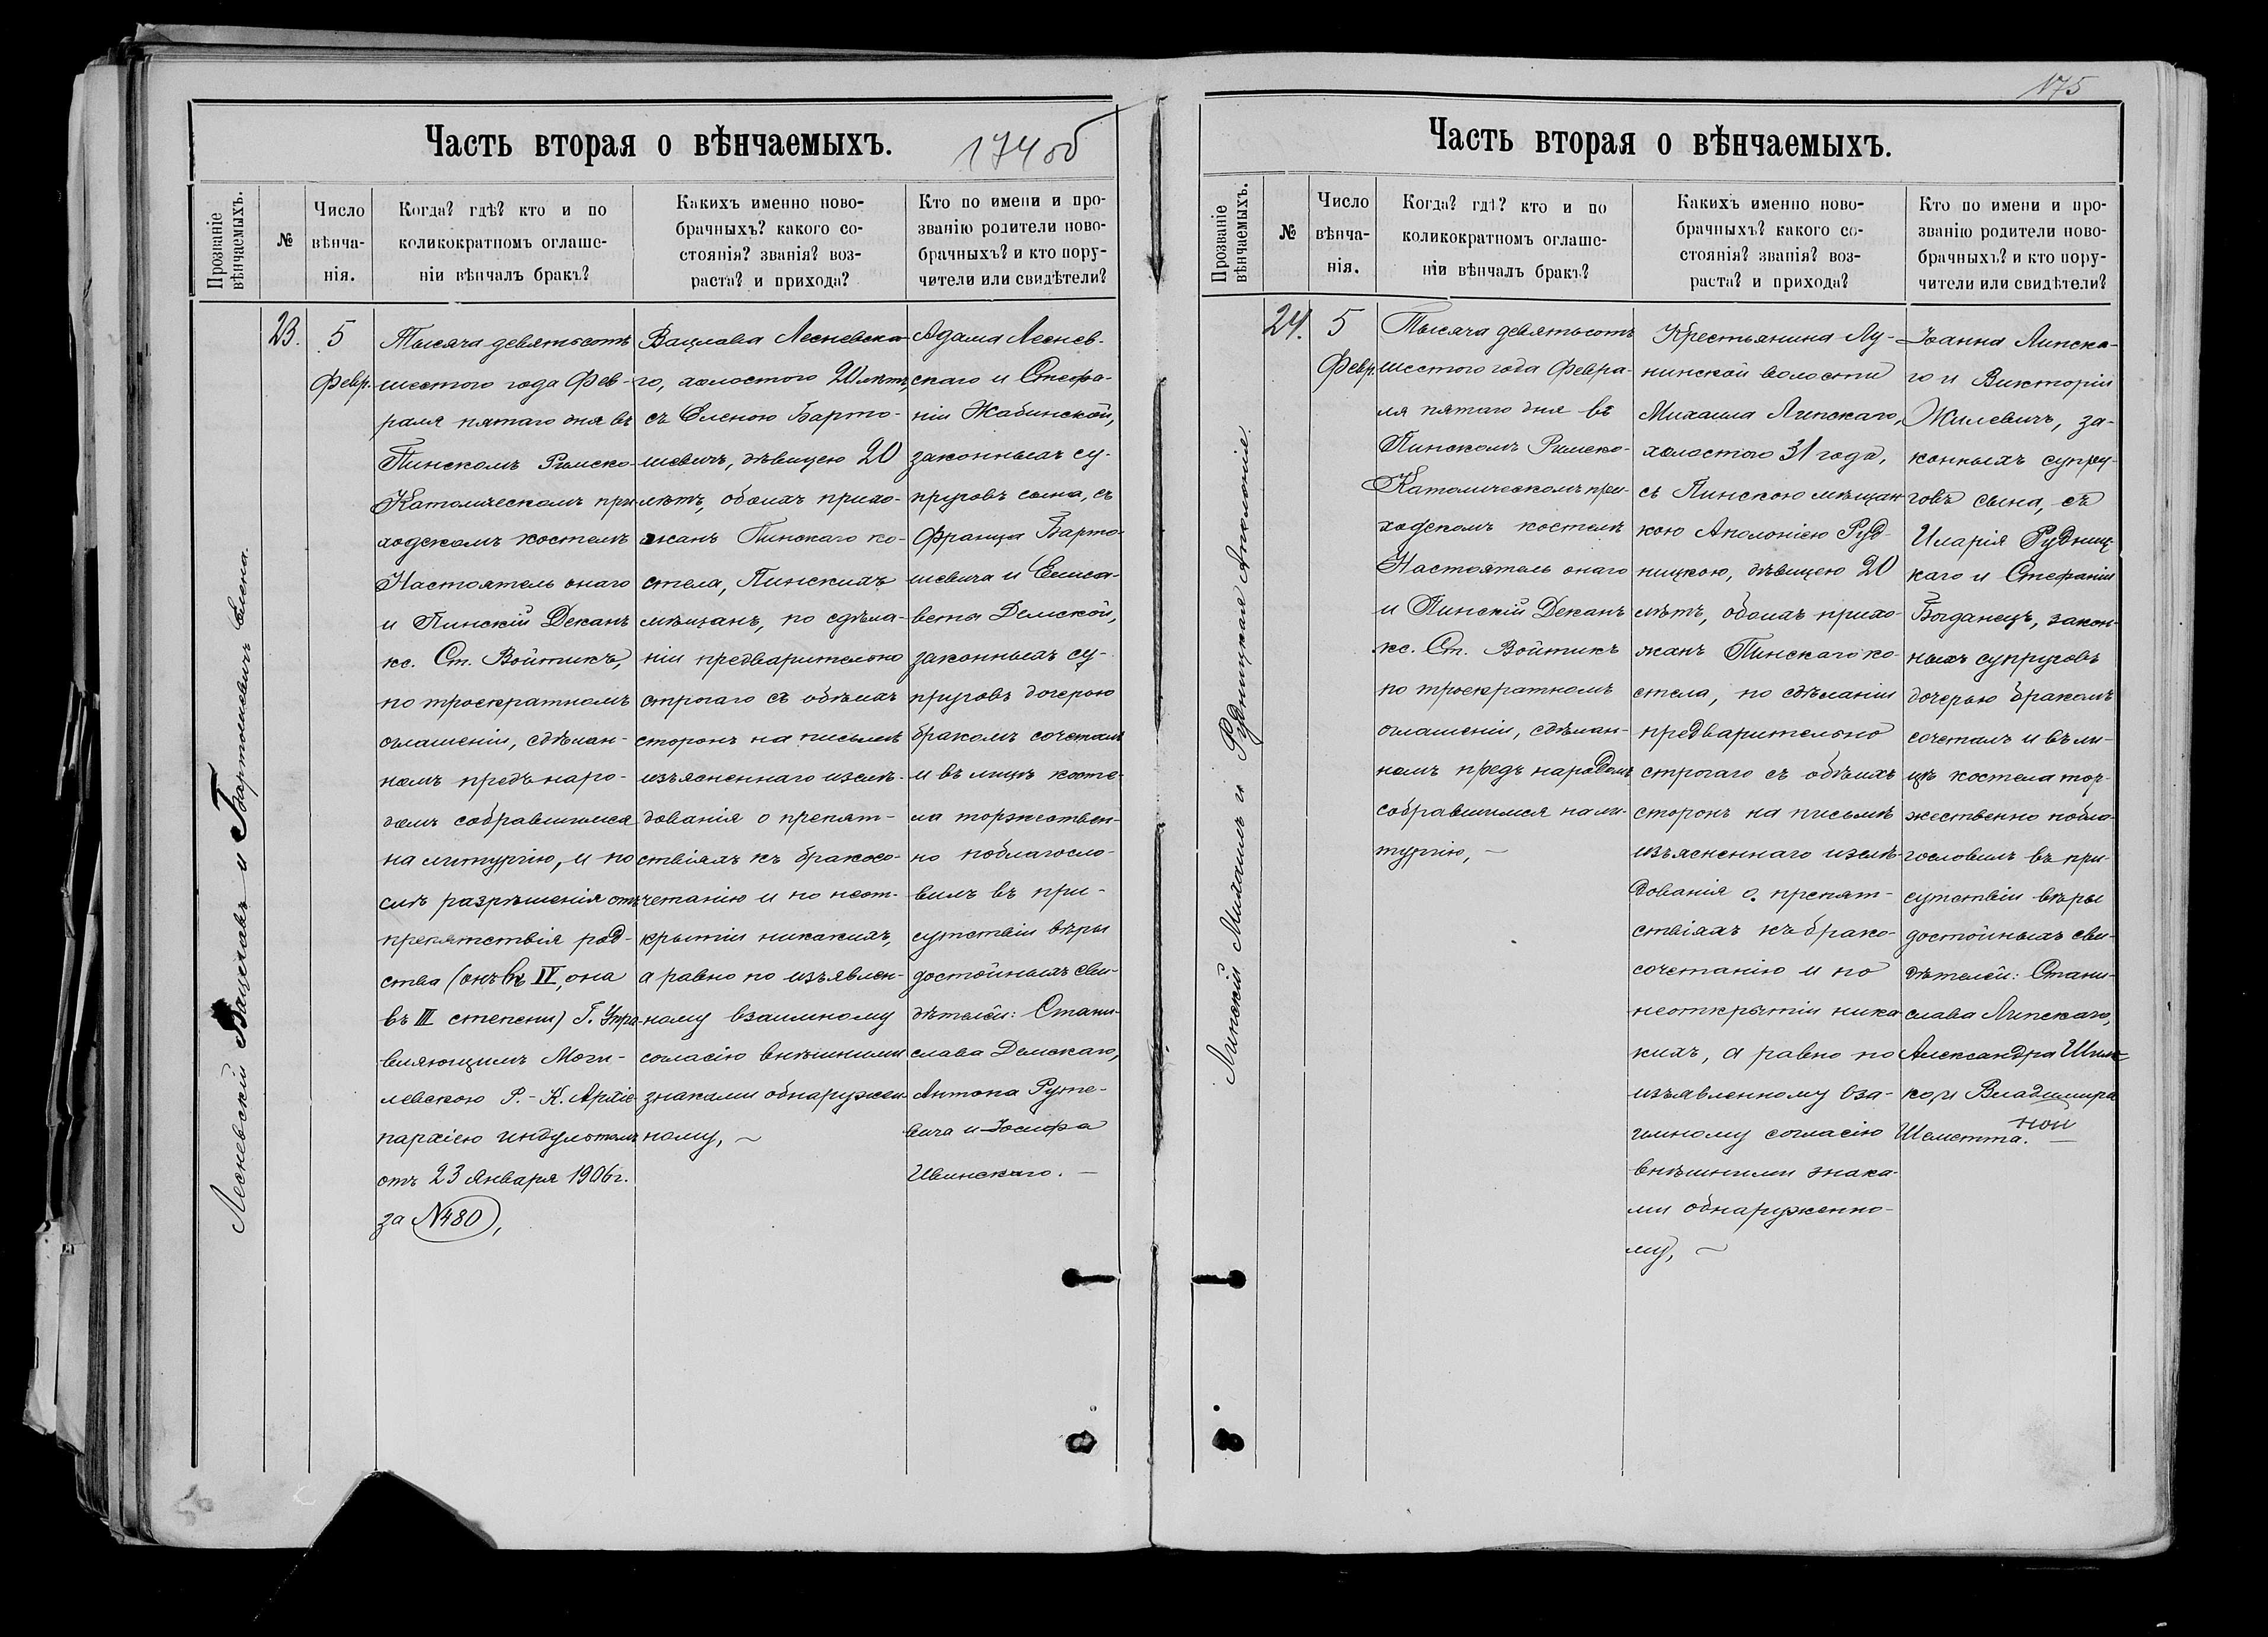 Часть вторая о вѣнчаемыхъ.
174 об
Прозваніе вѣнчаемыхъ.
№
Число вѣнча-нія.
Когда? гдѣ? кто и по
коликократномъ оглаше-
ніи вѣнчалъ бракъ?
Какихъ именно ново-
брачныхъ? какого со-
стоянія? званія? воз-
раста? и прихода?
Кто по имени и про-
званію родители ново-
брачныхъ? и кто пору-
чители или свидѣтели?
Лесневскій Вацлавъ и Бартошевичъ Елена.
23.
5
Февр.
Тысяча девятьсотъ
шестого года Фев-
раля пятаго дня въ
Пинскомъ Римско-
Католическомъ при
ходскомъ костелѣ
Настоятель онаго
и Пинскій Деканъ
кс. Ст. Войтикъ,
по троекратномъ
оглашеніи, сдѣлан-
номъ предъ наро-
домъ собравшимся
на литургію, и по
силѣ разрѣшенія отъ
препятствія род-
ства (онъ въ IV, она
въ III степени) Г. Упра-
вляющимъ Моги-
левскою Р.-К. Архіе
пархіею индультомъ
отъ 23 Января 1906 г.
за N480,
Вацлава Лесневска-
го, холостого 20 лѣтъ,
съ Еленою Барто-
шевичъ, дѣвицею 20
лѣтъ, обоихъ прихо-
жанъ Пинскаго ко-
стела, Пинскихъ
мѣщанъ, по сдѣла-
ніи предварительно
строгаго съ обѣихъ
сторонъ на письмѣ
изъясненнаго изслѣ-
дованія о препят-
ствіяхъ къ бракосо-
четанію и по неот-
крытіи никакихъ,
а равно по изъявлен-
ному взаимному
согласію внѣшними
знаками обнаружен-
ному, ~
Адама Леснев-
скаго и Стефа-
ніи Жабинской,
законныхъ су-
пруговъ сына, съ
Франца Барто-
шевича и Елиса-
веты Демской,
законныхъ су-
пруговъ дочерью
бракомъ сочеталъ
и въ лицѣ косте-
ла торжествен-
но поблагосло-
вилъ въ при-
сутствіи вѣры
достойныхъ сви-
дѣтелей: Стани-
слава Демскаго,
Антона Руте-
вича и Іосифа
Ивинскаго. —
175
Часть вторая о вѣнчаемыхъ.
Прозваніе вѣнчаемыхъ.
№
Число вѣнча-нія.
Когда? гдѣ? кто и по
коликократномъ оглаше-
ніи вѣнчалъ бракъ?
Какихъ именно ново-
брачныхъ? какого со-
стоянія? званія? воз-
раста? и прихода?
Кто по имени и про-
званію родители ново-
брачныхъ? и кто пору-
чители или свидѣтели?
Липскій Михаилъ и Рудницкая Аполонія.
24.
5
Февр.
Тысяча девятьсотъ
шестого года Февра-
ля пятаго дня въ
Пинскомъ Римско-
Католическомъ при-
ходскомъ костелѣ
Настоятель онаго
и Пинскій Деканъ
кс. Ст. Войтикъ
по троекратномъ
оглашеніи, сдѣлан-
номъ предъ народомъ
собравшимся на ли-
тургію, —
Крестьянина Лу-
нинской волости
Михаила Липскаго,
холостого 31 года,
съ Пинскою мѣщан
кою Аполоніею Руд-
ницкою, дѣвицею 20
лѣтъ, обоихъ прихо-
жанъ Пинскаго ко-
стела, по сдѣланіи
предварительно
строгаго съ обѣихъ
сторонъ на письмѣ
изъясненнаго изслѣ-
дованія о препят-
ствіяхъ къ брако-
сочетанію и по
неоткрытіи ника
кихъ, а равно по
изъявленному вза-
имному согласію
внѣшними знака-
ми обнаруженно-
му, ~
Іоанна Липска-
го и Викторіи
Жилевичъ, за-
конныхъ супру-
говъ сына, съ
Иларія Рудниц-
каго и Стефаніи
Богданецъ, закон-
ныхъ супруговъ
дочерью бракомъ
сочеталъ и въ ли-
цѣ костела тор-
жественно побла-
гословилъ въ при-
сутствіи вѣры
достойныхъ сви-
дѣтелей: Стани-
слава Липскаго,
Александра
и Владимира
Шеметта.